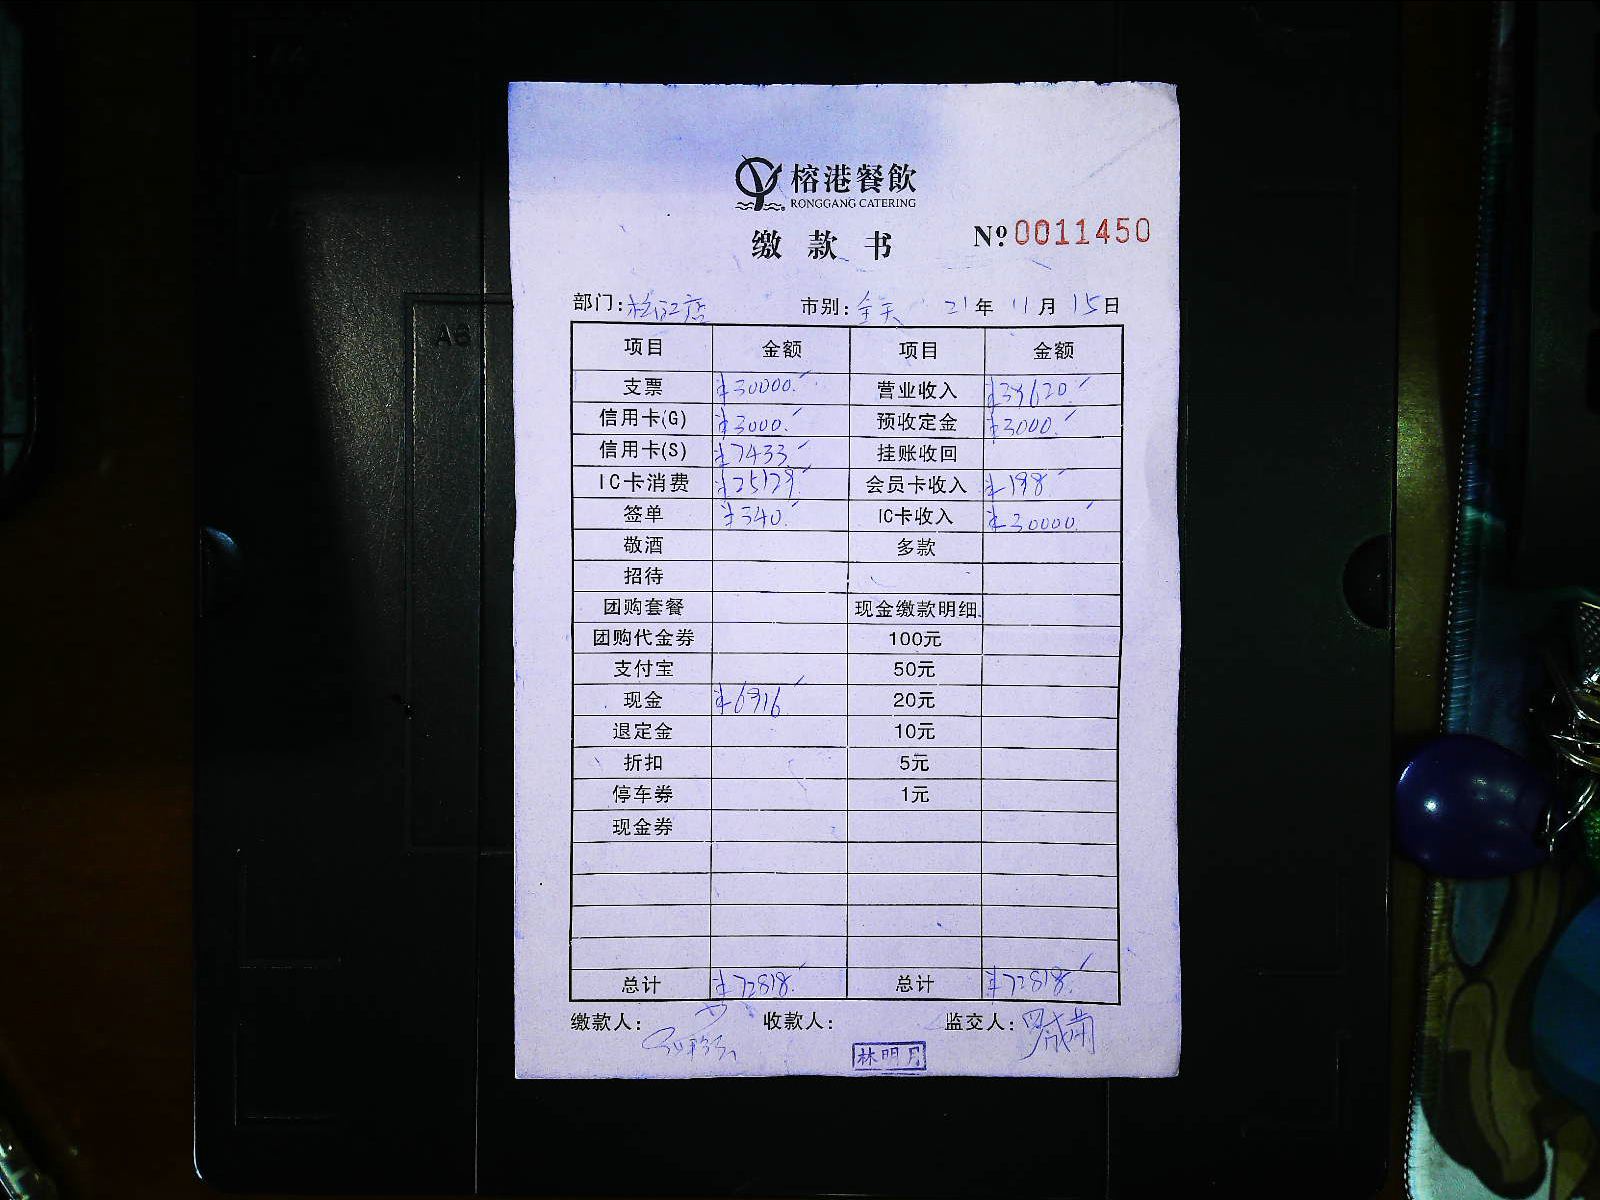 榕港餐飲
RONGGANG CATERING
缴款书
№ 0011450
部门:松江店 市别:全天 21年11月15日
项目 金额 项目 金额
支票 ¥30000. 营业收入 ¥39620.
信用卡(G) ¥3000. 预收定金 ¥3000.
信用卡(S) ¥7433 挂账收回
IC卡消费 ¥25129. 会员卡收入 ¥198.
签单 ¥340. IC卡收入 ¥30000.
敬酒 多款
招待
团购套餐 现金缴款明细
团购代金券 100元
支付宝 50元
现金 ¥6916 20元
退定金 10元
折扣 5元
停车券 1元
现金券
总计 ¥72818. 总计 ¥72818.
缴款人: 收款人: 监交人:
林明月
A6